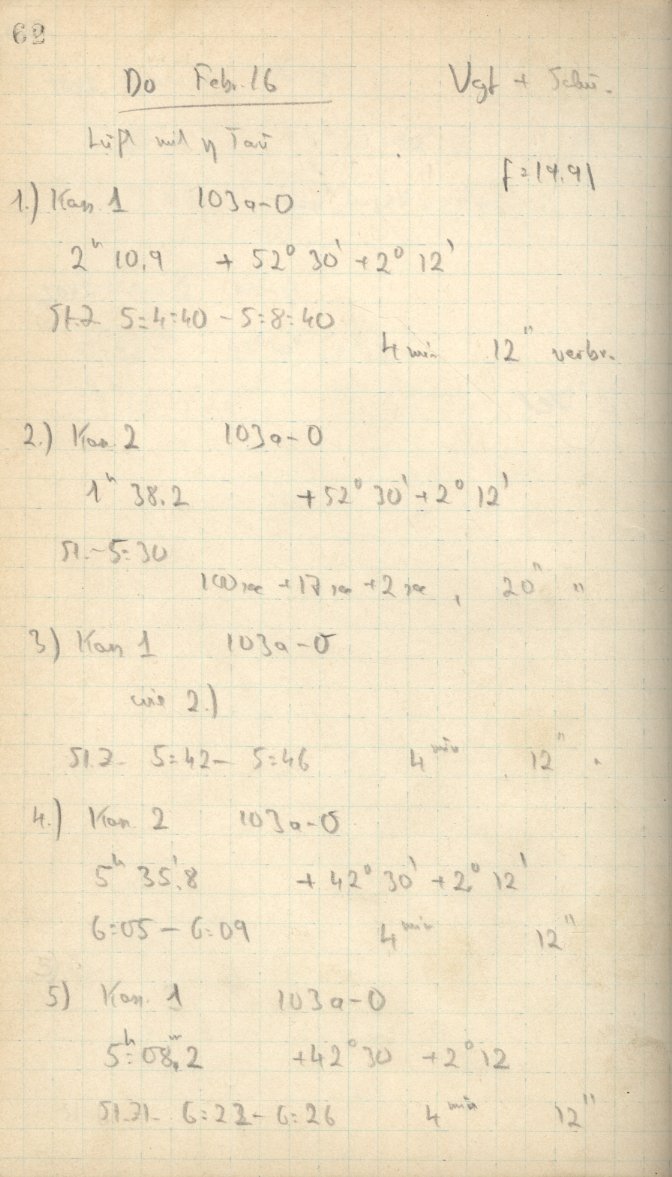 62
Do Febr. 16 Vgt + Schü.
Luft mit η Tau
f = 14,91
1.) Kass 1 103a-O
2ʰ 10,9 + 52° 30' + 2° 12'
St.Z. 5:4:40 - 5:8:40
4 min 12" verbr.
2.) Kass. 2 103a-O
1ʰ 38.2 + 52° 30' + 2° 12'
St. - 5:30
100 sec + 17 sec + 2 sec, 20" "
3) Kass 1 103a-O
wie 2.)
St.Z. 5:42 - 5:46 4 min 12" .
4.) Kass 2 103a-O
5ʰ 35'.8 + 42° 30' + 2° 12'
6:05 - 6:09 4 min 12"
5) Kass. 1 103a-O
5ʰ: 08ᵐ,2 + 42° 30 + 2° 12
6:22 - 6:26 4 min 12"